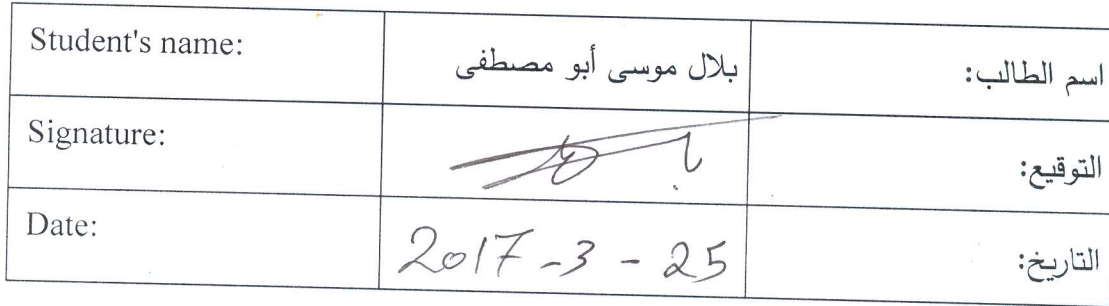 Student's name: بلال موسى أبو مصطفى اسم الطالب:
Signature: التوقيع:
Date: 2017-3-25 التاريخ: